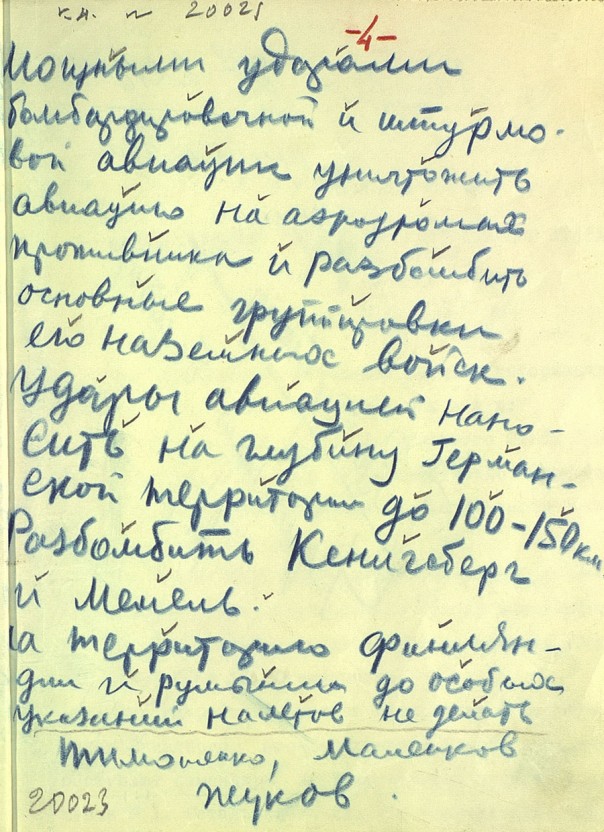 к.п. № 20025
-4-
Мощными ударами
бомбардировочной и штурмо-
вой авиации уничтожить
авиацию на аэродромах
противника и разбомбить
основные группировки
его наземных войск.
Удары авиацией нано-
сить на глубину Герман-
ской территории до 100-150 км
Разбомбить Кенигсберг
и Мемель.
на территорию Финлян-
дии и румынии до особых
указаний налетов не делать
Тимошенко, Маленков
Жуков.
20023